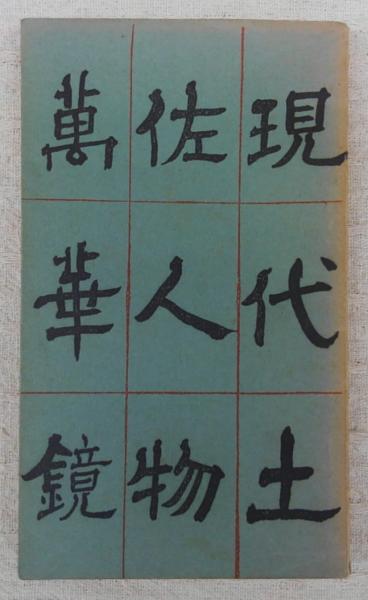 現代土
佐人物
萬華鏡